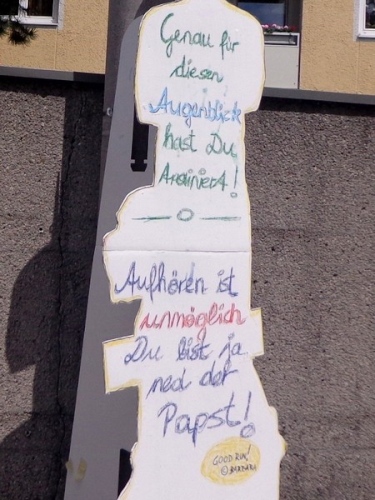 Genau für
diesen
Augenblick
hast Du
trainiert!
Aufhören ist
unmöglich
Du bist ja
ned der
Papst!
GOOD RUN!
@BARBARA